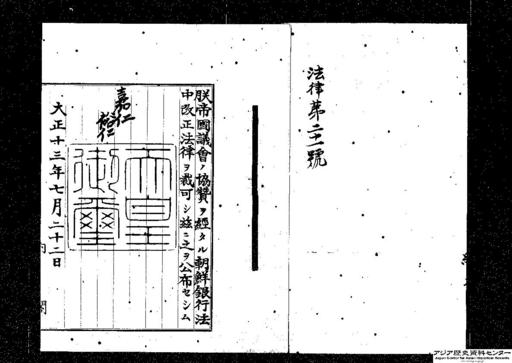 法律第二十一號
朕帝國議會ノ協贊ヲ經タル朝鮮銀行法
中改正法律ヲ裁可シ茲ニ之ヲ公布セシム
嘉仁
裕仁
天皇
御璽
大正十三年七月二十二日
内閣
アジア歴史資料センター
Japan Center for Asian Historical Records